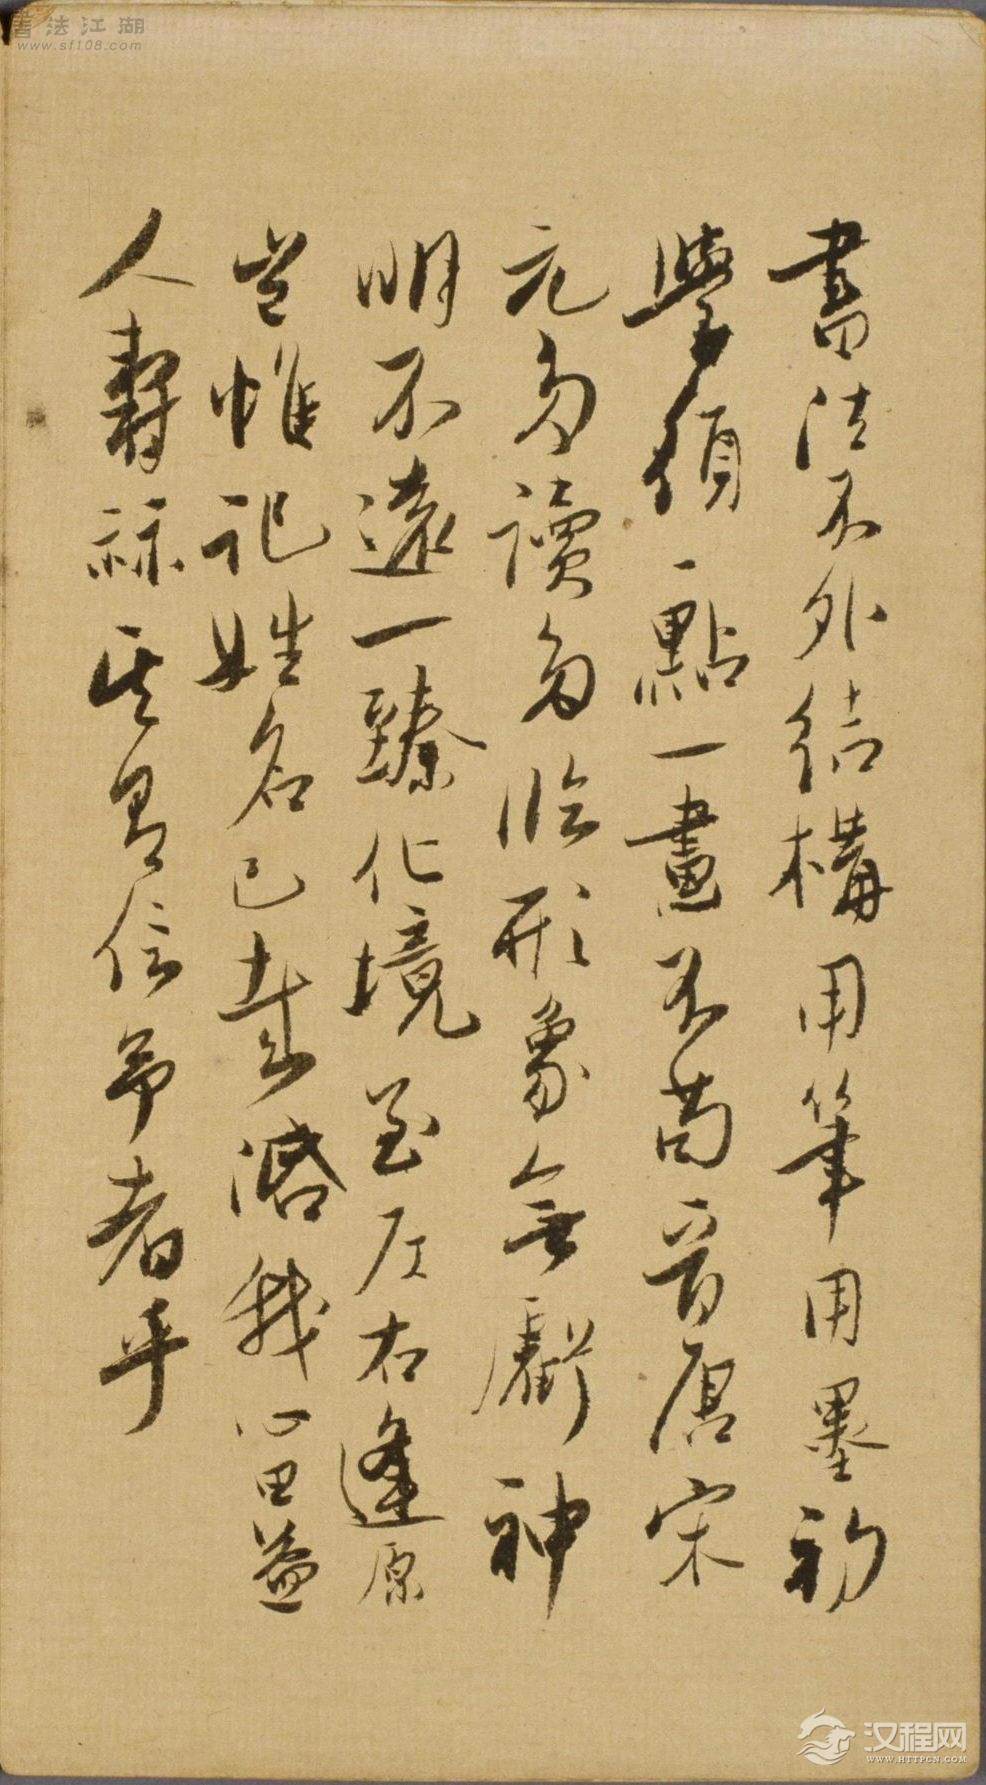 書法不外結構用筆用墨初
學須一點一畫不苟晉唐宋
元多讀多臨形象無虧神
明不遠一臻化境至左右逢原
豈惟記姓名已哉澹我心田益
人壽祿其有信予者乎
書法江湖
www.sf108.com
汉程网
WWW.HTTPCN.COM